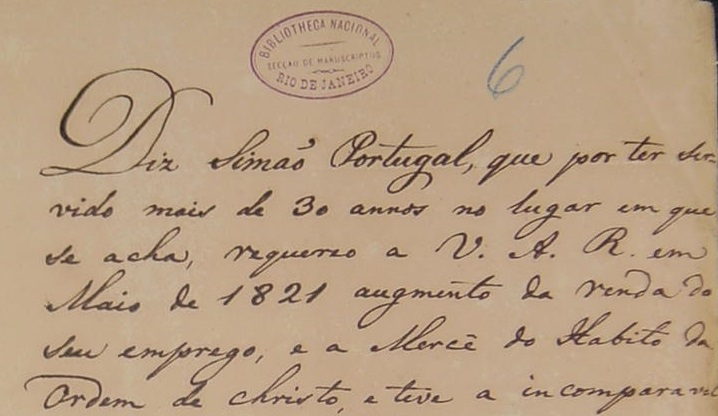 BIBLIOTHECA NACIONAL
SECÇÃO DE MANUSCRIPTOS
RIO DE JANEIRO
6
Diz Simaõ Portugal, que por ter ser=
vido mais de 30 annos no lugar em que
se acha, requereo a V. A. R. em
Maio de 1821 augmento da renda do
seu emprego, e a Mercê do Habito da
Ordem de Christo, e teve a incomparavel